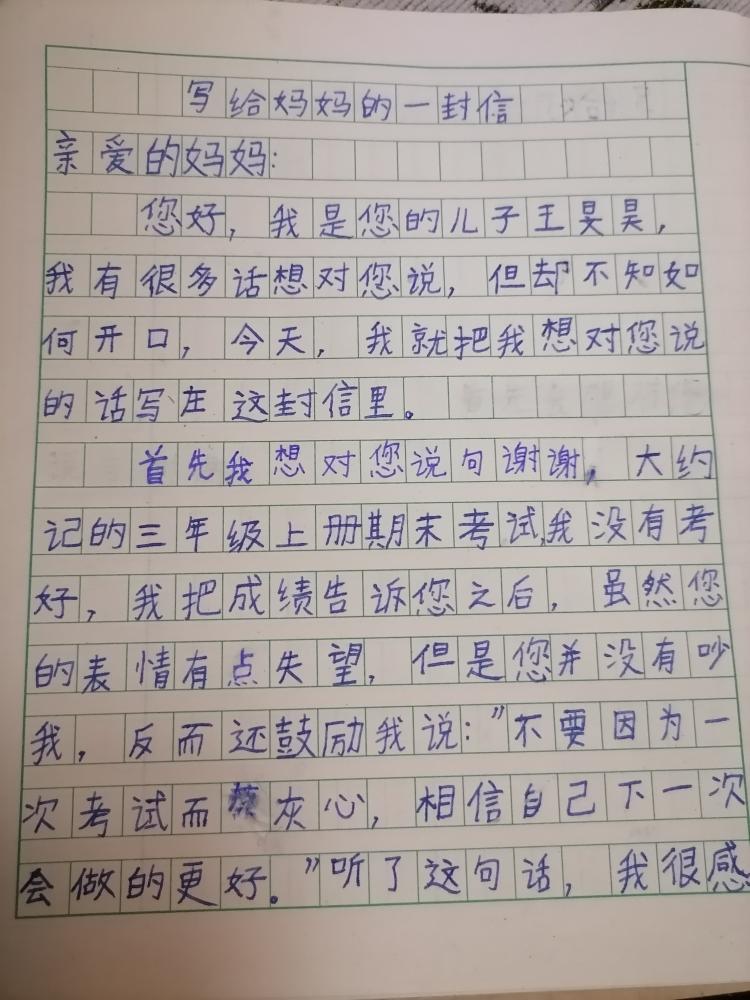 写给妈妈的一封信
亲爱的妈妈：
您好，我是您的儿子王昊昊，
我有很多话想对您说，但却不知如
何开口，今天，我就把我想对您说
的话写在这封信里。
首先我想对您说句谢谢，大约
记的三年级上册期末考试，我没有考
好，我把成绩告诉您之后，虽然您
的表情有点失望，但是您并没有吵
我，反而还鼓励我说："不要因为一
次考试而灰心，相信自己下一次
会做的更好。"听了这句话，我很感